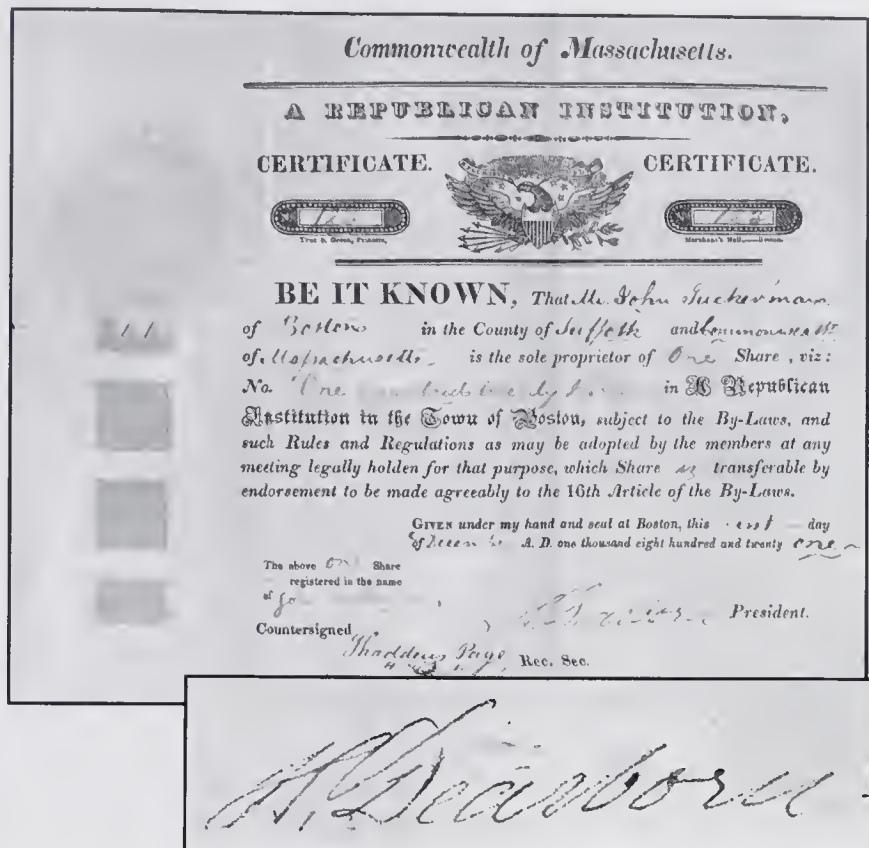 Commonwealth of Massachusetts.
A REPUBLICAN INSTITUTION,
CERTIFICATE.
CERTIFICATE.
True & Green, Printers,
Merchant's Hall,
BE IT KNOWN, That Mr. John Tuckerman
of Boston in the County of Suffolk and Commonwealth
of Massachusetts is the sole proprietor of One Share, viz:
No. One in A Republican
Institution in the Town of Boston, subject to the By-Laws, and
such Rules and Regulations as may be adopted by the members at any
meeting legally holden for that purpose, which Share is transferable by
endorsement to be made agreeably to the 16th Article of the By-Laws.
GIVEN under my hand and seal at Boston, this day
of A. D. one thousand eight hundred and twenty one
The above One Share
registered in the name
of
President.
Countersigned
Thaddeus Page, Rec. Sec.
Dearborn